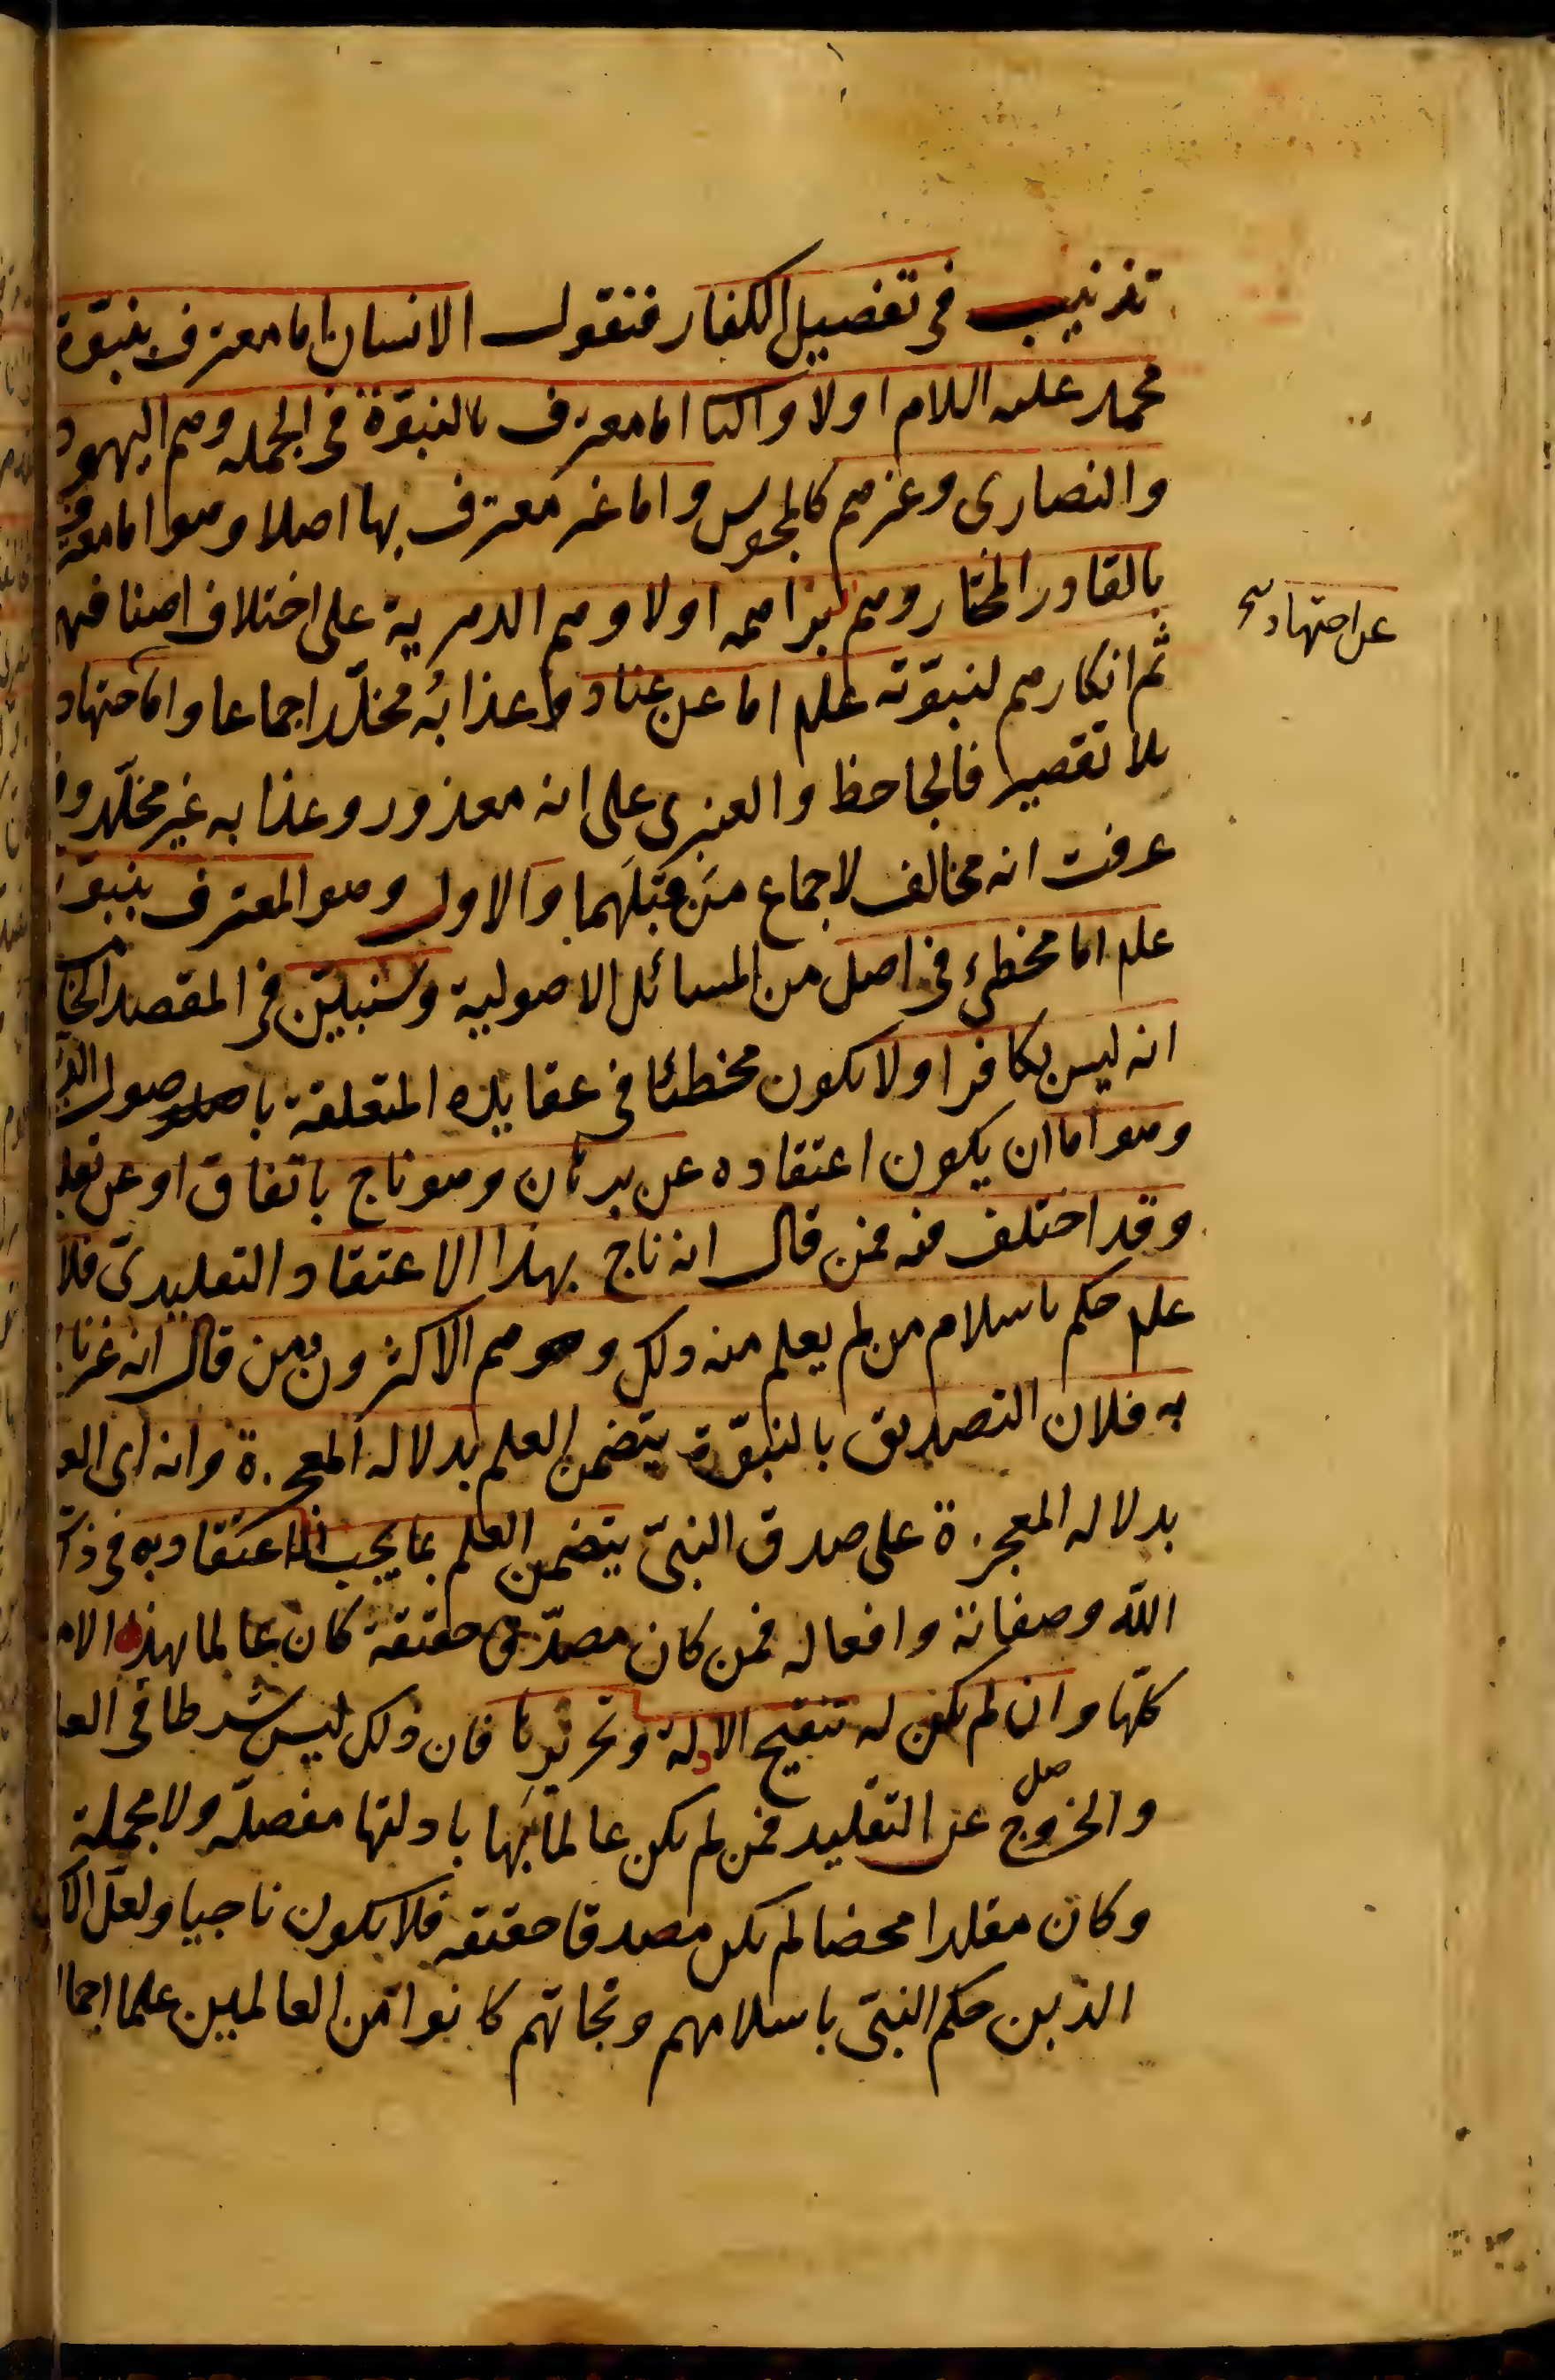 تذنيب في تفصيل الكفار فنقول الانسان اما معترف بنبوّة
محمد عليه السلام اولا والثا اما معترف بالنبوّة في الجمله وهم اليهود
والنصارى وغيرهم كالمجوس واما غير معترف بها اصلا وهو اما معترف
بالقادر المختار وهم البراهمه اولا وهم الدهرية على اختلاف اصنافهم
ثم انكارهم لنبوّته علم اما عن عناد وعذابُه مخلّد اجماعا واما اجتهاد
عن اجتهاد
بلا تقصير فالجاحظ والعنبرى على انه معذور وعذابه غير مخلّد وا
عرفت انه مخالف لاجماع مَن قبلَهما والاول وهو المعترف بنبوّ
علم اما مخطىء في اصل من المسائل الاصولية وسنبيّن في المقصد الخا
انه ليس بكافر اولا يكون مخطئا في عقايده المتعلقة باصول الد
وهو اما ان يكون اعتقاده عن برهان وهو ناج باتفاق او عن تقليد
وقد اختلف فيه فمن قال انه ناج بهذا الاعتقاد التقليدىّ فلا
علم حكم باسلام من لم يعلم منه ذلك وهم الاكثرون ومن قال انه غير نا
به فلان التصديق بالنبوّة يتضمن العلم بدلاله المعجزة وانه اى العـ
بدلاله المعجزة على صدق النبىّ يتضمن العلم بما يجب اعتقاده في ذ
الله وصفاته وافعاله فمن كان مصدّقا حقيقة كان عالما بهذه الا
كلّها وان لم يكن له تنقيح الادلة وتحريرها فان ذلك ليس شرطا في العلم
والخروج عن التقليد فمن لم يكن عالما بها بادلتها مفصلة ولا مجملة
وكان مقلدا محضا لم يكن مصدقا حقيقه فلا يكون ناجيا ولعلّ الا
الذين حكم النبىّ باسلامهم ونجاتهم كانوا من العالمين علما اجما